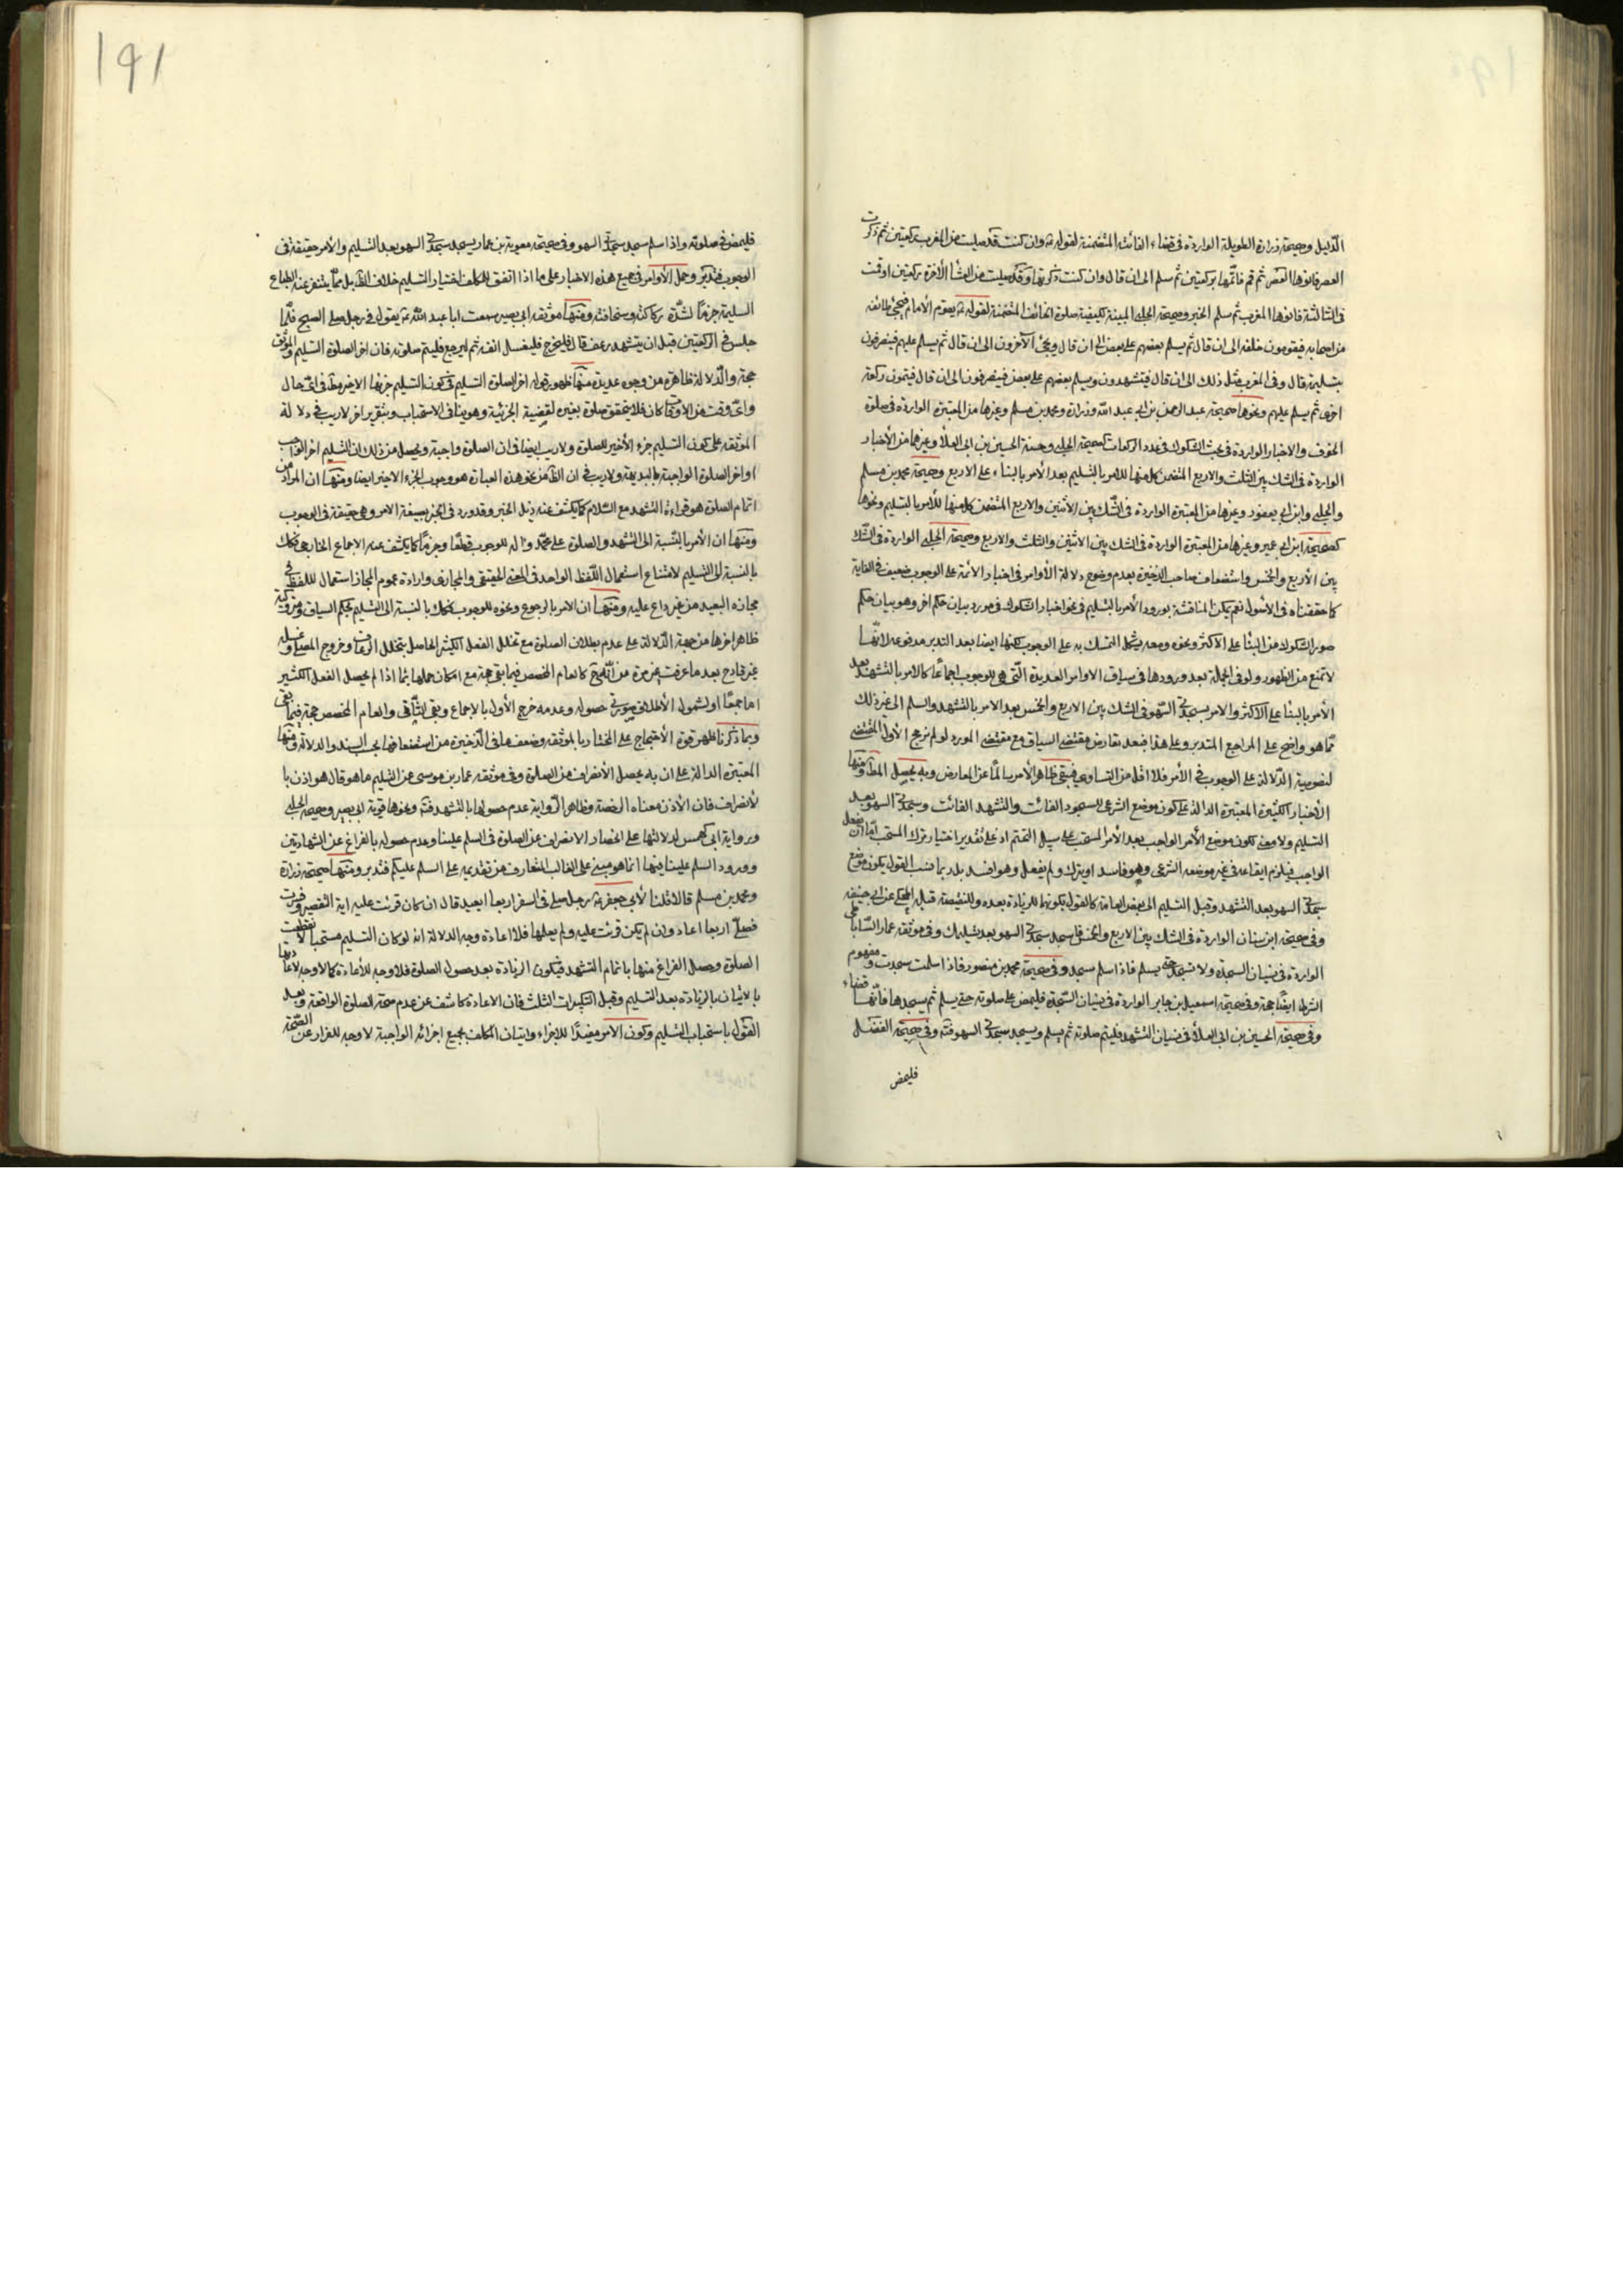 الدّليل وصحيحة زرارة الطويلة الواردة فى قضاء الفائت المتضمنة لقوله ع وان كنت قد صليت من المغرب ركعتين ثم ذكرت
العصر فانوها العصر ثم قم فاتمها بركعتين ثم سلم الى ان قال وان كنت ذكرتها وقد صليت من العشاء الاخرة ركعتين او قمت
فى الثالثة فانوها المغرب ثم سلم الخبر وصحيحة الحلبى المبينة لكيفية صلوة الخائف المتضمنة لقوله ع يقوم الأمام ويجئ طائفة
من اصحابه فيقومون خلفه الى ان قال ثم يسلم بعضهم على بعض الى ان قال ويجئ الآخرون الى ان قال ثم يسلم عليهم فينصرفون
بتسليمة قال وفى المغرب مثل ذلك الى ان قال فيتشهدون ويسلم بعضهم على بعض فينصرفون الى ان قال فيتمون ركعة
اخرى ثم يسلم عليهم ونحوها صحيحة عبد الرحمن بن ابى عبد الله وزرارة ومحمد بن مسلم وغيرها من المعتبرة الواردة فى صلوة
الخوف والاخبار الواردة فى بحث الشكوك فى عدد الركعات كصحيحة الحلبى وحسنة الحسين بن ابى العلا وغيرهما من الأخبار
الواردة فى الشك بين الثلث والاربع المتضمن كل منها للامر بالتسليم بعد الأمر بالبناء على الاربع وصحيحة محمد بن مسلم
والحلبى وابن ابى يعفور وغيرها من المعتبرة الواردة فى الشك بين الاثنين والاربع المتضمن كل منها للأمر بالتسليم ونحوها
كصحيحة ابن ابى عمير وغيرها من المعتبرة الواردة فى الشك بين الاثنين والثلث والاربع وصحيحة الحلبى الواردة فى الشك
بين الأربع والخمس واستضعاف صاحب الذخيرة بعدم وضوح دلالة الأوامر فى اخبار الائمة على الوجوب ضعيف فى الغاية
كما حققناه فى الاصول نعم يمكن المناقشة بورود الأمر بالتسليم فى نحو اخبار الشكوك فى مورد بيان حكم اخر وهو بيان حكم
صور الشكوك من البناء على الاكثر ونحوه ومعه يشكل التمسك به على الوجوب لكنها ايضا بعد التدبر مدفوعة لانّها
لا تمنع من الظهور ولو فى الجملة بعد ورودها فى سياق الاوامر العديدة التى هى للوجوب اجماعا كالامر بالتشهد بعد
الأمر بالبناء على الاكثر والامر بسجدتى السهو فى الشك بين الاربع والخمس بعد الامر بالتشهد والسلم الى غير ذلك
مما هو واضح على المراجع المتدبر وعلى هذا فبعد تعارض مقتضى السياق مع مقتضى المورد لو لم نرجح الأول المقتضى
لخصوصية الدلالة على الوجوب فى الأمر فلا اقل من التساوى فيبقى ظاهر الأمر سالما عن المعارض وبه يحصل المط ومنها
الأخبار الكثيرة المعتبرة الدالة على كون موضع الشرعى للسجود الفائت والتشهد الفائت وسجدتى السهو بعد
التسليم ولا معنى لكون موضع الأمر الواجب بعد الأمر المستحب على سبيل التحتم اذ على تقدير اختيار ترك المستحب امّا ان يفعل
الواجب فيلزم ايقاعه فى غير موضعه الشرعى وهو فاسد او يترك ولم يفعل وهو افسد بل ربما نسب القول بكون موضع
سجدتى السهو بعد التشهد وقبل التسليم الى بعض العامة كالقول بكونها للزيادة بعده وللنقيصة قبله المحكى عن ابى حنيفة
وفى صحيحة ابن سنان الواردة فى الشك بين الاربع والخمس فاسجد سجدتى السهو بعد تسليمك وفى موثقة عمار الساباطى
الواردة فى نسيان السجدة ولا تسجد حتى يسلم فاذا سلم سجد وفى صحيحة محمد بن منصور فاذا سلمت سجدت ومفهوم
الشرط ايضا حجة وفى صحيحة اسمعيل بن جابر الواردة فى نسيان السجدة فليمض على صلوته حتى يسلم ثم يسجدها فانّها قضاء
وفى صحيحة الحسين بن ابى العلا فى نسيان التشهد فليتم صلوته ثم يسلم ويسجد سجدتى السهو وفى صحيحة الفضل
فليمض
١٩١
فليمض فى صلوته واذا سلم سجد سجدتى السهو وفى صحيحة معوية بن عمار يسجد سجدتى السهو بعد التسليم والأمر حقيقة فى
الوجوب فتدبر وحمل الأوامر فى جميع هذه الاخبار على ما اذا اتفق للمكلف اختيار التسليم خلاف الظ بل مما يتنفر عنه الطباع
السليمة جزما لشدة ركاكته وسخافته ومنها موثقة ابى بصير سمعت ابا عبد الله ع يقول فى رجل صلى الصبح فلمّا
جلس فى الركعتين قبل ان يتشهد رعف قال فليخرج فليغسل انفه ثم ليرجع فليتم صلوته فان اخر الصلوة التسليم والموثق
حجة والدلالة ظاهرة من وجوه عديدة منها ظهور قوله اخر الصلوة التسليم فى كون التسليم جزئها الاخير مط فى اىّ حال
واىّ وقت من الاوقات كان فلا يتحقق صلوة بغيره لقضية الجزئية وهو ينافى الاستحباب وبتقرير اخر لا ريب فى دلالة
الموثقة على كون التسليم جزء الأخير للصلوة ولا ريب ايضا فى ان الصلوة واجبة ويحصل من ذلك ان التسليم اخر الواجب
او اخر الصلوة الواجبة بالبديهة ولا ريب فى ان الظ من نحو هذه العبارة هو وجوب الجزء الاخير ايضا ومنها ان المراد من
اتمام الصلوة هو قراءة التشهد مع السلام كما يكشف عنه ذيل الخبر وقد ورد فى الخبر بصيغة الامر وهى حقيقة فى الوجوب
ومنها ان الأمر بالنسبة الى التشهد والصلوة على محمد واله للوجوب قطعا وجزما كما يكشف عنه الاجماع الخارجى فكك
بالنسبة الى التسليم لامتناع استعمال اللفظ الواحد فى المعنى الحقيقى والمجازى وارادة عموم المجاز استعمال للفظ فى
مجازه البعيد من غير داع عليه ومنها ان الامر بالرجوع ونحوه للوجوب فكك بالنسبة الى التسليم بحكم السياق
ظاهر اخرها من جهة الدلالة على عدم بطلان الصلوة مع تخلل الفعل الكثير الحاصل بتخلل الرعاف وخروج المصلى وغسله
غير قادح بعد ما عرفت غير مرة من انّ الخبر كالعام المخصص فيما بقى حجة مع امكان حملها بما اذا لم يحصل الفعل الكثير
اجماعا او لشمول الأطلاق صورتى حصوله وعدمه خرج الأول بالإجماع وبقى الثانى والعام المخصص حجة فيما بقى
وبما ذكرنا ظهر قوة الأحتجاج على المختار بالموثقة وضعف ما فى الذخيرة من استضعافها بحسب السند والدلالة ومنها
المعتبرة الدالة على ان به يحصل الأنصراف من الصلوة وفى موثقة عمار بن موسى عن التسليم ما هو قال هو اذن با
لأنصراف فان الأذن معناه الرخصة وظاهر الرواية عدم حصولها بالتشهد فقط ونحوها قوية ابى بصير وصحيحة الحلبى
ورواية ابى كهمس لدلالتها على انحصار الانصراف عن الصلوة فى السلم علينا وعدم حصوله بالفراغ عن الشهادتين
وورود السلم علينا فيها انما هو مبنى على الغالب المتعارف من تقديمه على السلم عليكم فتدبر ومنها صحيحة زرارة
ومحمد بن مسلم قالا قلنا لأبى جعفر ع رجل صلى فى السفر اربعا ايعيد قال ان كان قرئت عليه اية التقصير وفسرت
فصلّى اربعا اعاد وان لم يكن قرئت عليه ولم يعلمها فلا اعادة وجه الدلالة انه لو كان التسليم مستحبا لانقطعت
الصلوة وحصل الفراغ منها باتمام التشهد فيكون الزيادة بعد حصول الصلوة فلا وجه للأعادة كما لا وجه لاعادتها
بالاتيان بالزيادة بعد التسليم وقبل التكبيرات الثلث فان الاعادة كاشف عن عدم صحة الصلوة الواقعة وبعد
القول باستحباب التسليم وكون الامر مفيدًا للاجزاء واتيان المكلف بجميع اجزائه الواجبة لا وجه للفرار عن الصّحة